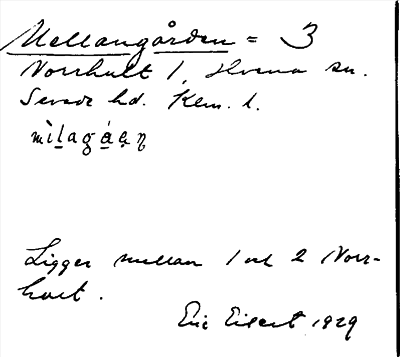 Mellangården = 3
Norrhult 1, Hvena sn.
Sevede hd. Klm. l.
mìlagá̱ɐṇ
Ligger mellan 1 och 2 Norr-
hult.
Eric Elgert 1929